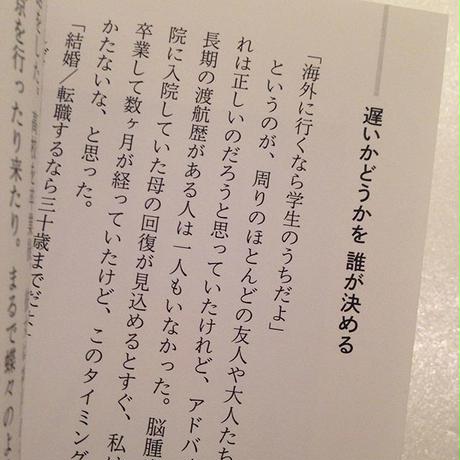 遅いかどうかを 誰が決める
「海外に行くなら学生のうちだよ」
というのが、周りのほとんどの友人や大人たち
れは正しいのだろうと思っていたけれど、アドバ
長期の渡航歴がある人は一人もいなかった。脳腫
院に入院していた母の回復が見込めるとすぐ、私は
卒業して数ヶ月が経っていたけど、このタイミング
かたないな、と思った。
「結婚／転職するなら三十歳までだよ」
京を行ったり来たり。まるで蝶々のよ